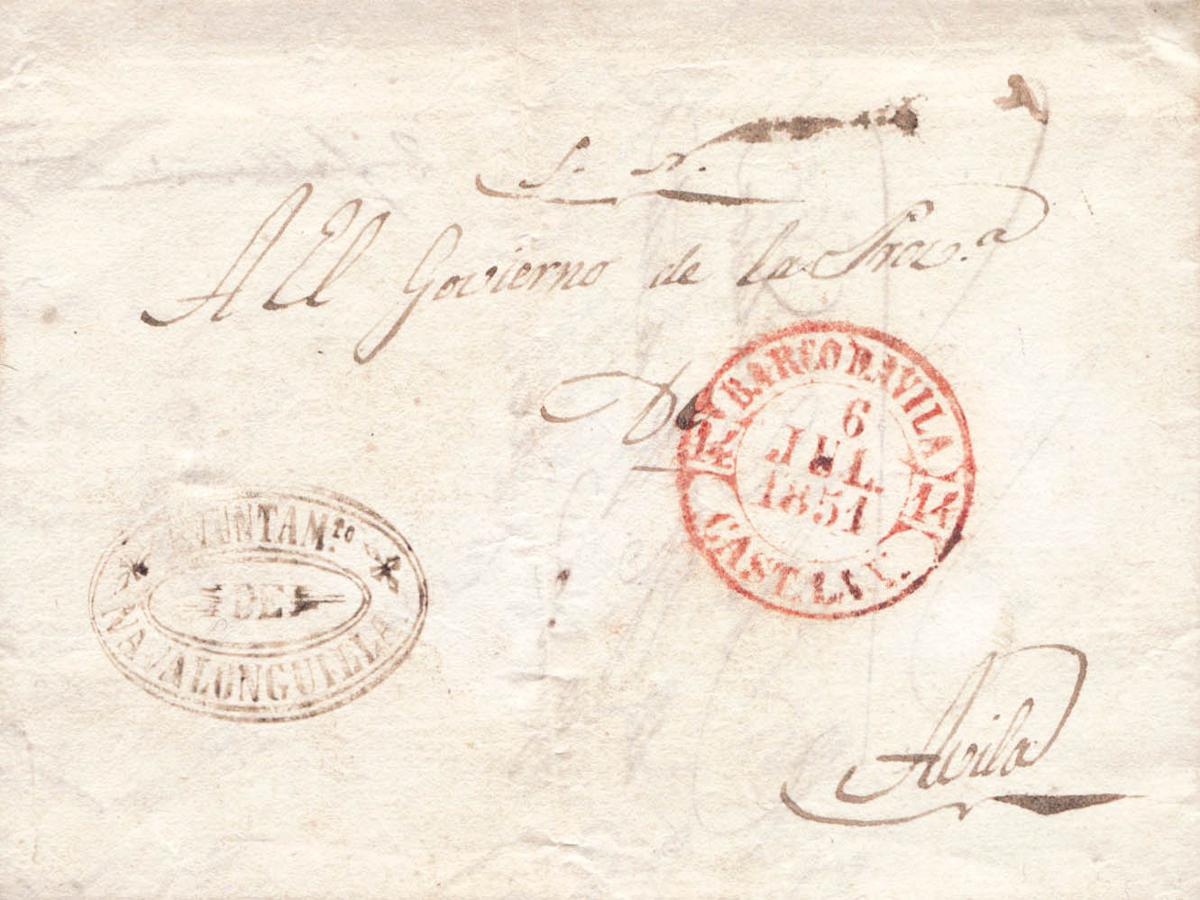 S. N.
Al El Govierno de la Prov.ª
De
BARCO D. AVILA
14 14
6
JUL.
1851
CAST. LA V.
AYUNTAM.to
DE
NAVALONGUILLA.
Avila